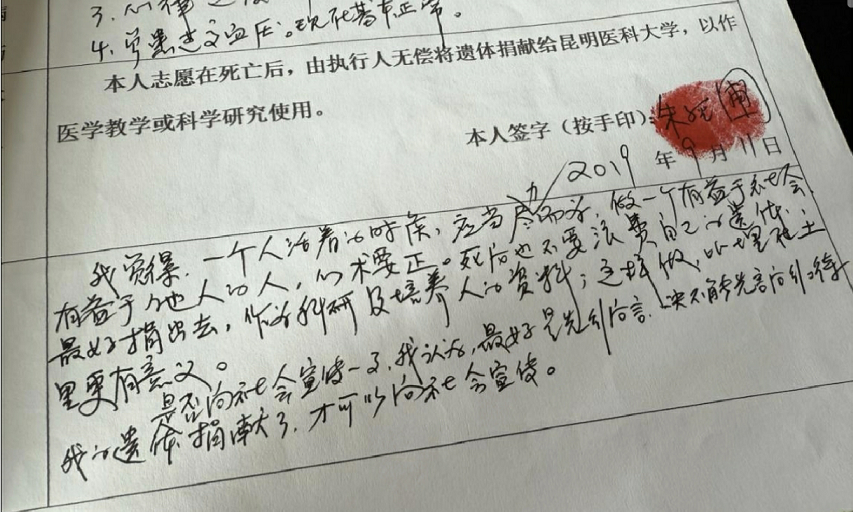 3. 心律
4. 曾患过高血压。现在基本正常。
本人志愿在死亡后，由执行人无偿将遗体捐献给昆明医科大学，以作
医学教学或科学研究使用。
本人签字（按手印）：朱
2019年9月11日
我觉得，一个人活着的时候，应当尽力而为，做一个有益于社会、
有益于他人的人，心术要正。死后也不要浪费自己的遗体，
最好捐出去，作为科研及培养人的资料；这样做，比埋在土
里更有意义。
是否向社会宣传一事，我认为，最好是先行后言，决不能先言后行。待
我的遗体捐献了，才可以向社会宣传。